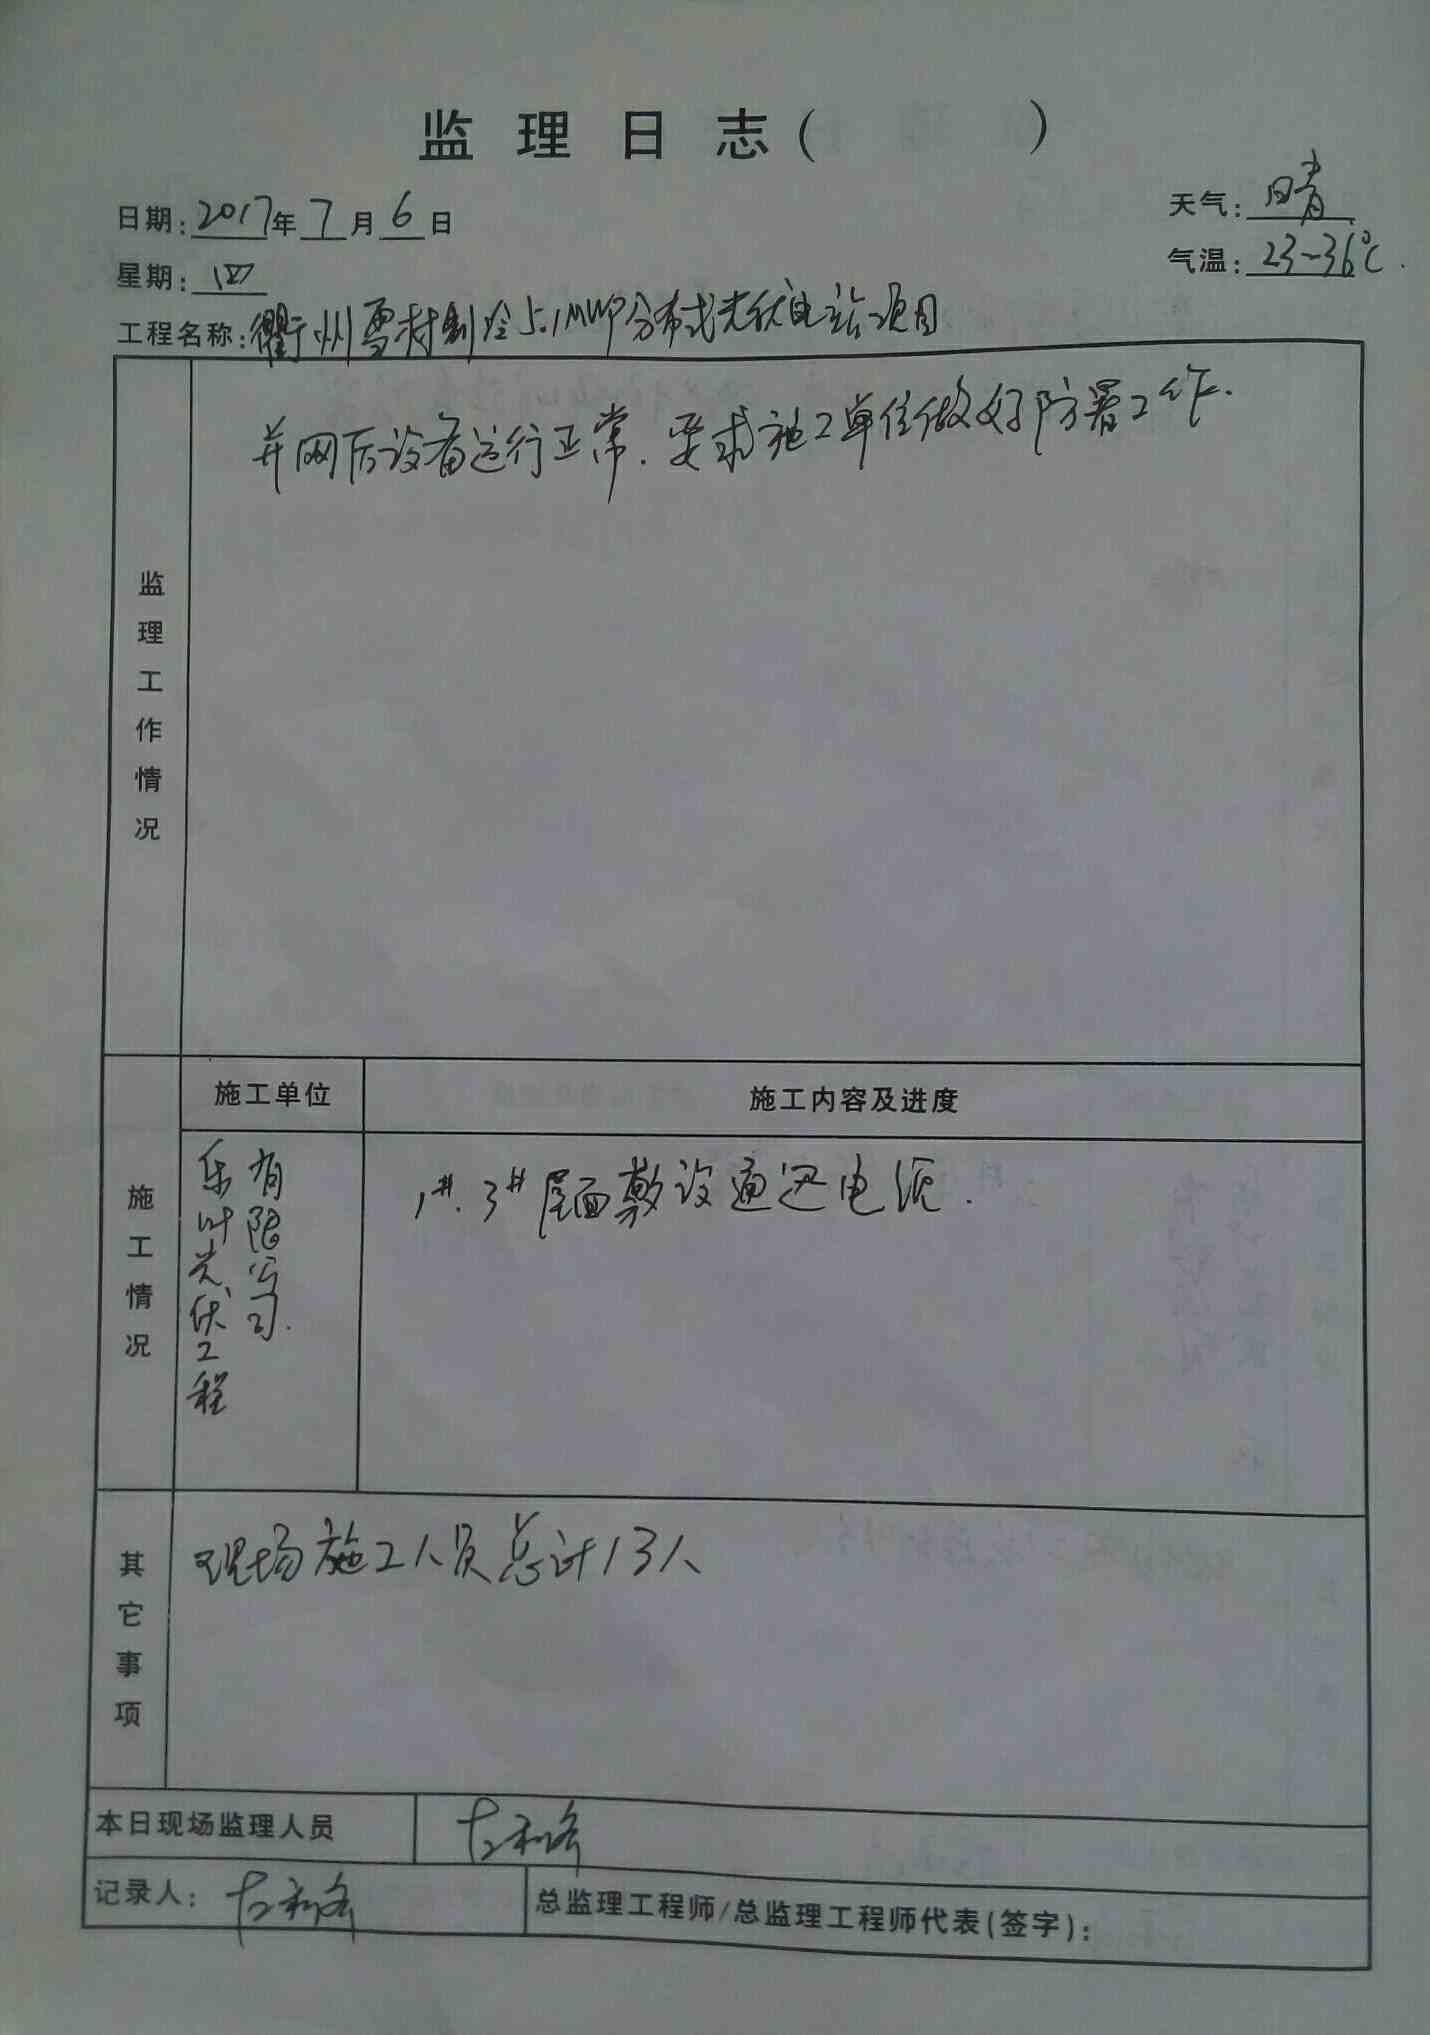 监理日志(　　　)
日期:2017年7月6日
天气:晴
星期:四
气温:23~36℃.
工程名称:衢州雪村制冷5.1MWP分布式光伏电站项目
监理工作情况
并网后设备运行正常.要求施工单位做好防署工作.
施工情况
施工单位
施工内容及进度
乐叶光伏工程
有限公司.
1#.3#屋面敷设通迅电源.
其它事项
现场施工人员总计13人
本日现场监理人员
记录人:
总监理工程师/总监理工程师代表(签字):